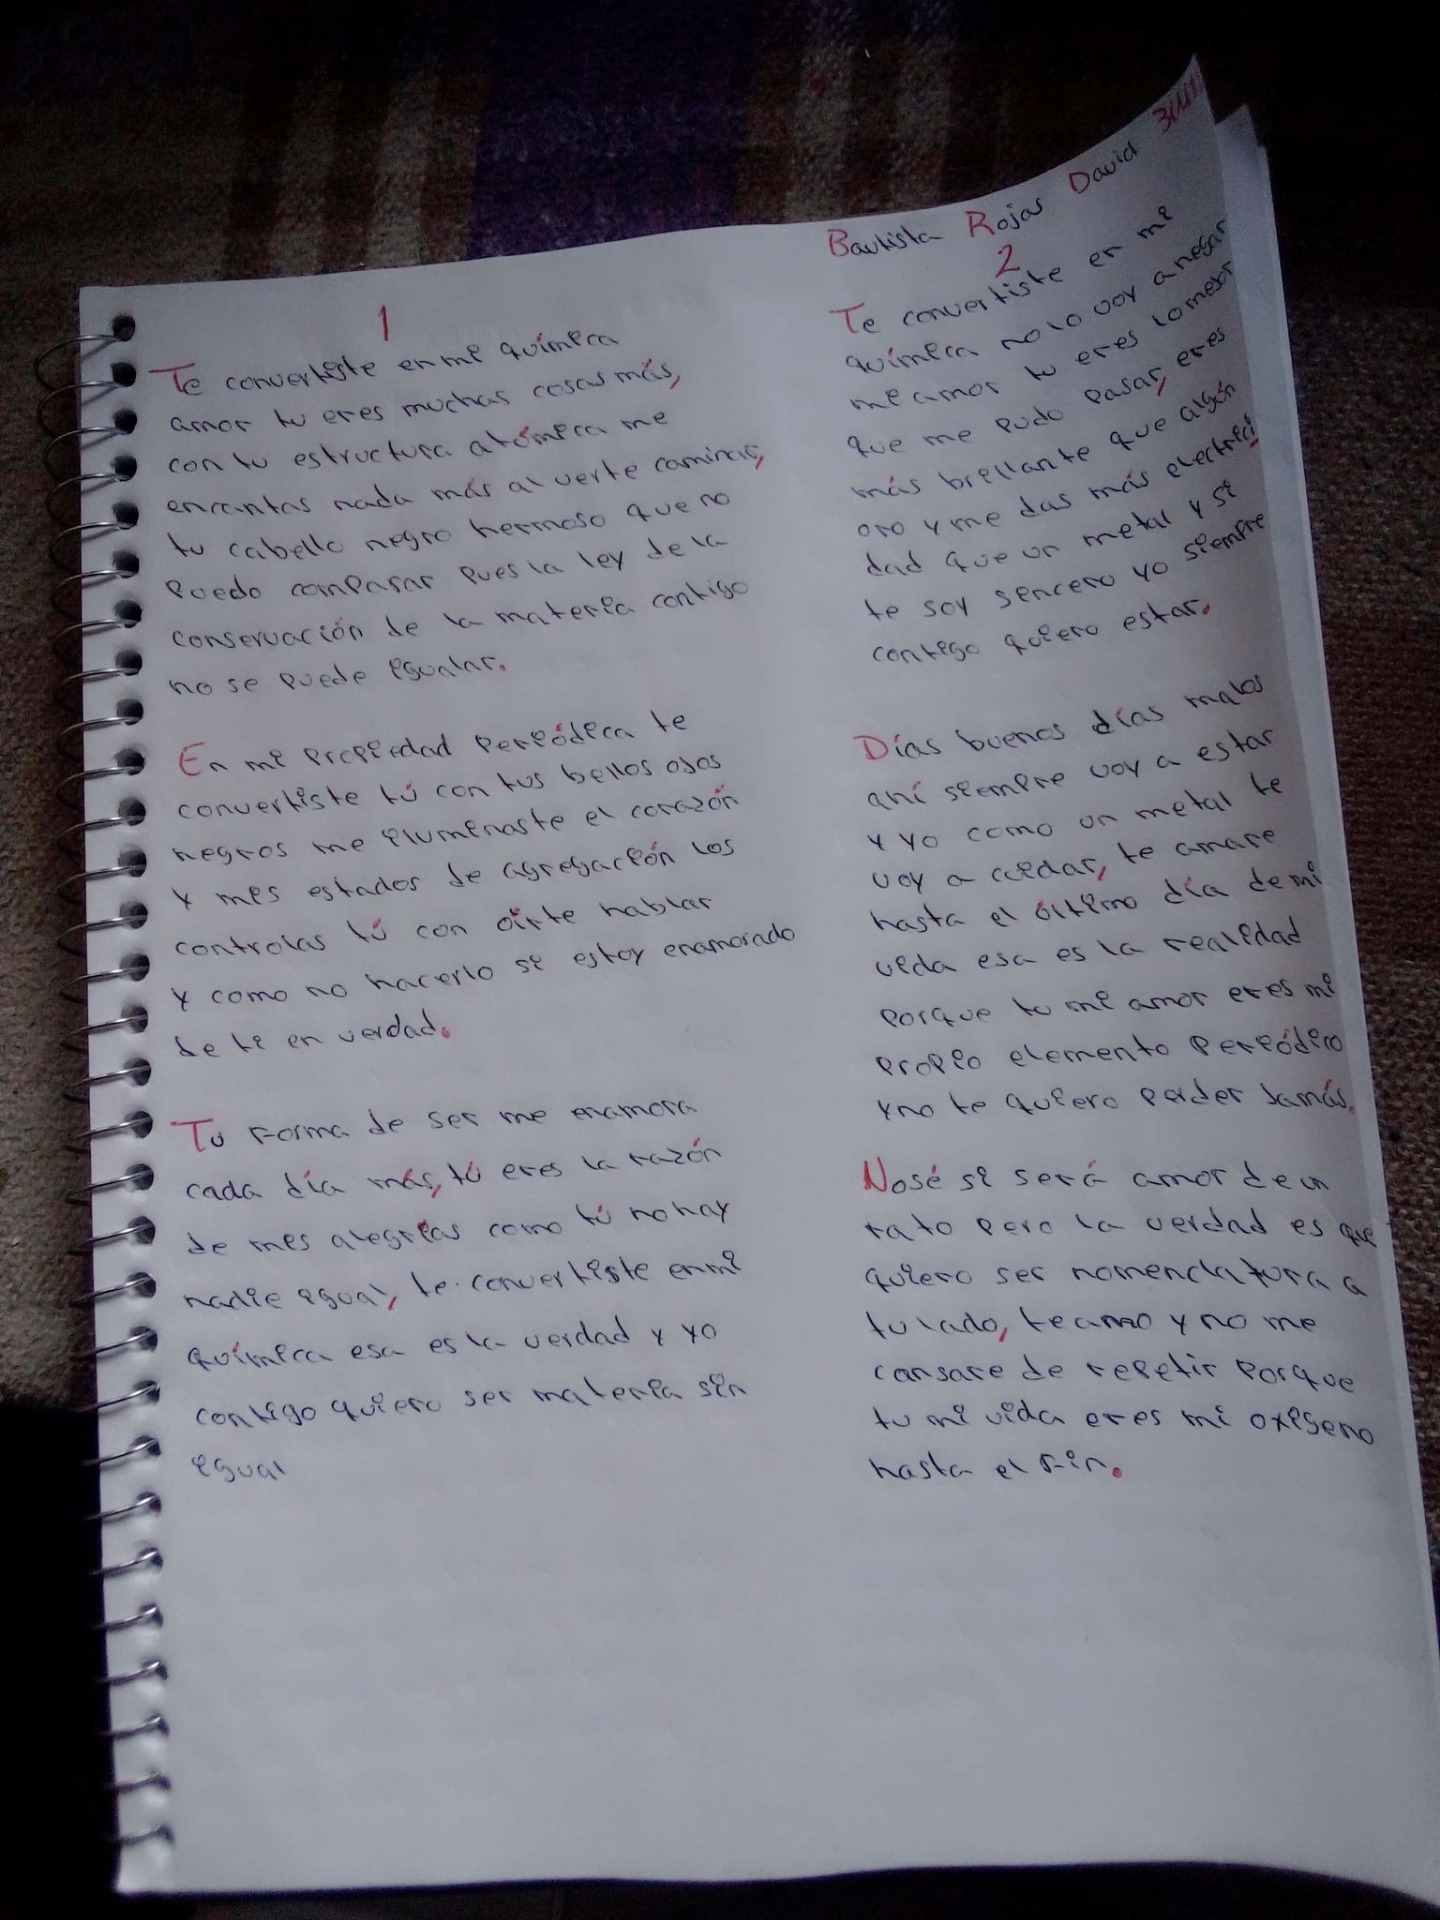 Bautista Rojas David
1
Te convertiste en mi química
amor tu eres muchas cosas más,
con tu estructura atómica me
encantas nada más al verte caminar,
tu cabello negro hermoso que no
puedo comparar pues la ley de la
conservación de la materia contigo
no se puede igualar.
En mi propiedad periódica te
convertiste tú con tus bellos ojos
negros me iluminaste el corazón
y mis estados de agregación los
controlas tú con oírte hablar
y como no hacerlo si estoy enamorado
de ti en verdad.
Tu forma de ser me enamora
cada día más, tú eres la razón
de mis alegrías como tú no hay
nadie igual, te convertiste en mi
química esa es la verdad y yo
contigo quiero ser materia sin
igual
2
Te convertiste en mi
química no lo voy a negar
mi amor tu eres lo mejor
que me pudo pasar, eres
más brillante que algún
oro y me das más electrici
dad que un metal y si
te soy sincero yo siempre
contigo quiero estar.
Días buenos días malos
ahí siempre voy a estar
y yo como un metal te
voy a cuidar, te amare
hasta el último día de mi
vida esa es la realidad
porque tu mi amor eres mi
propio elemento periódico
y no te quiero perder jamás.
No sé si será amor de un
rato pero la verdad es que
quiero ser nomenclatura a
tu lado, te amo y no me
cansare de repetir porque
tu mi vida eres mi oxigeno
hasta el fin.